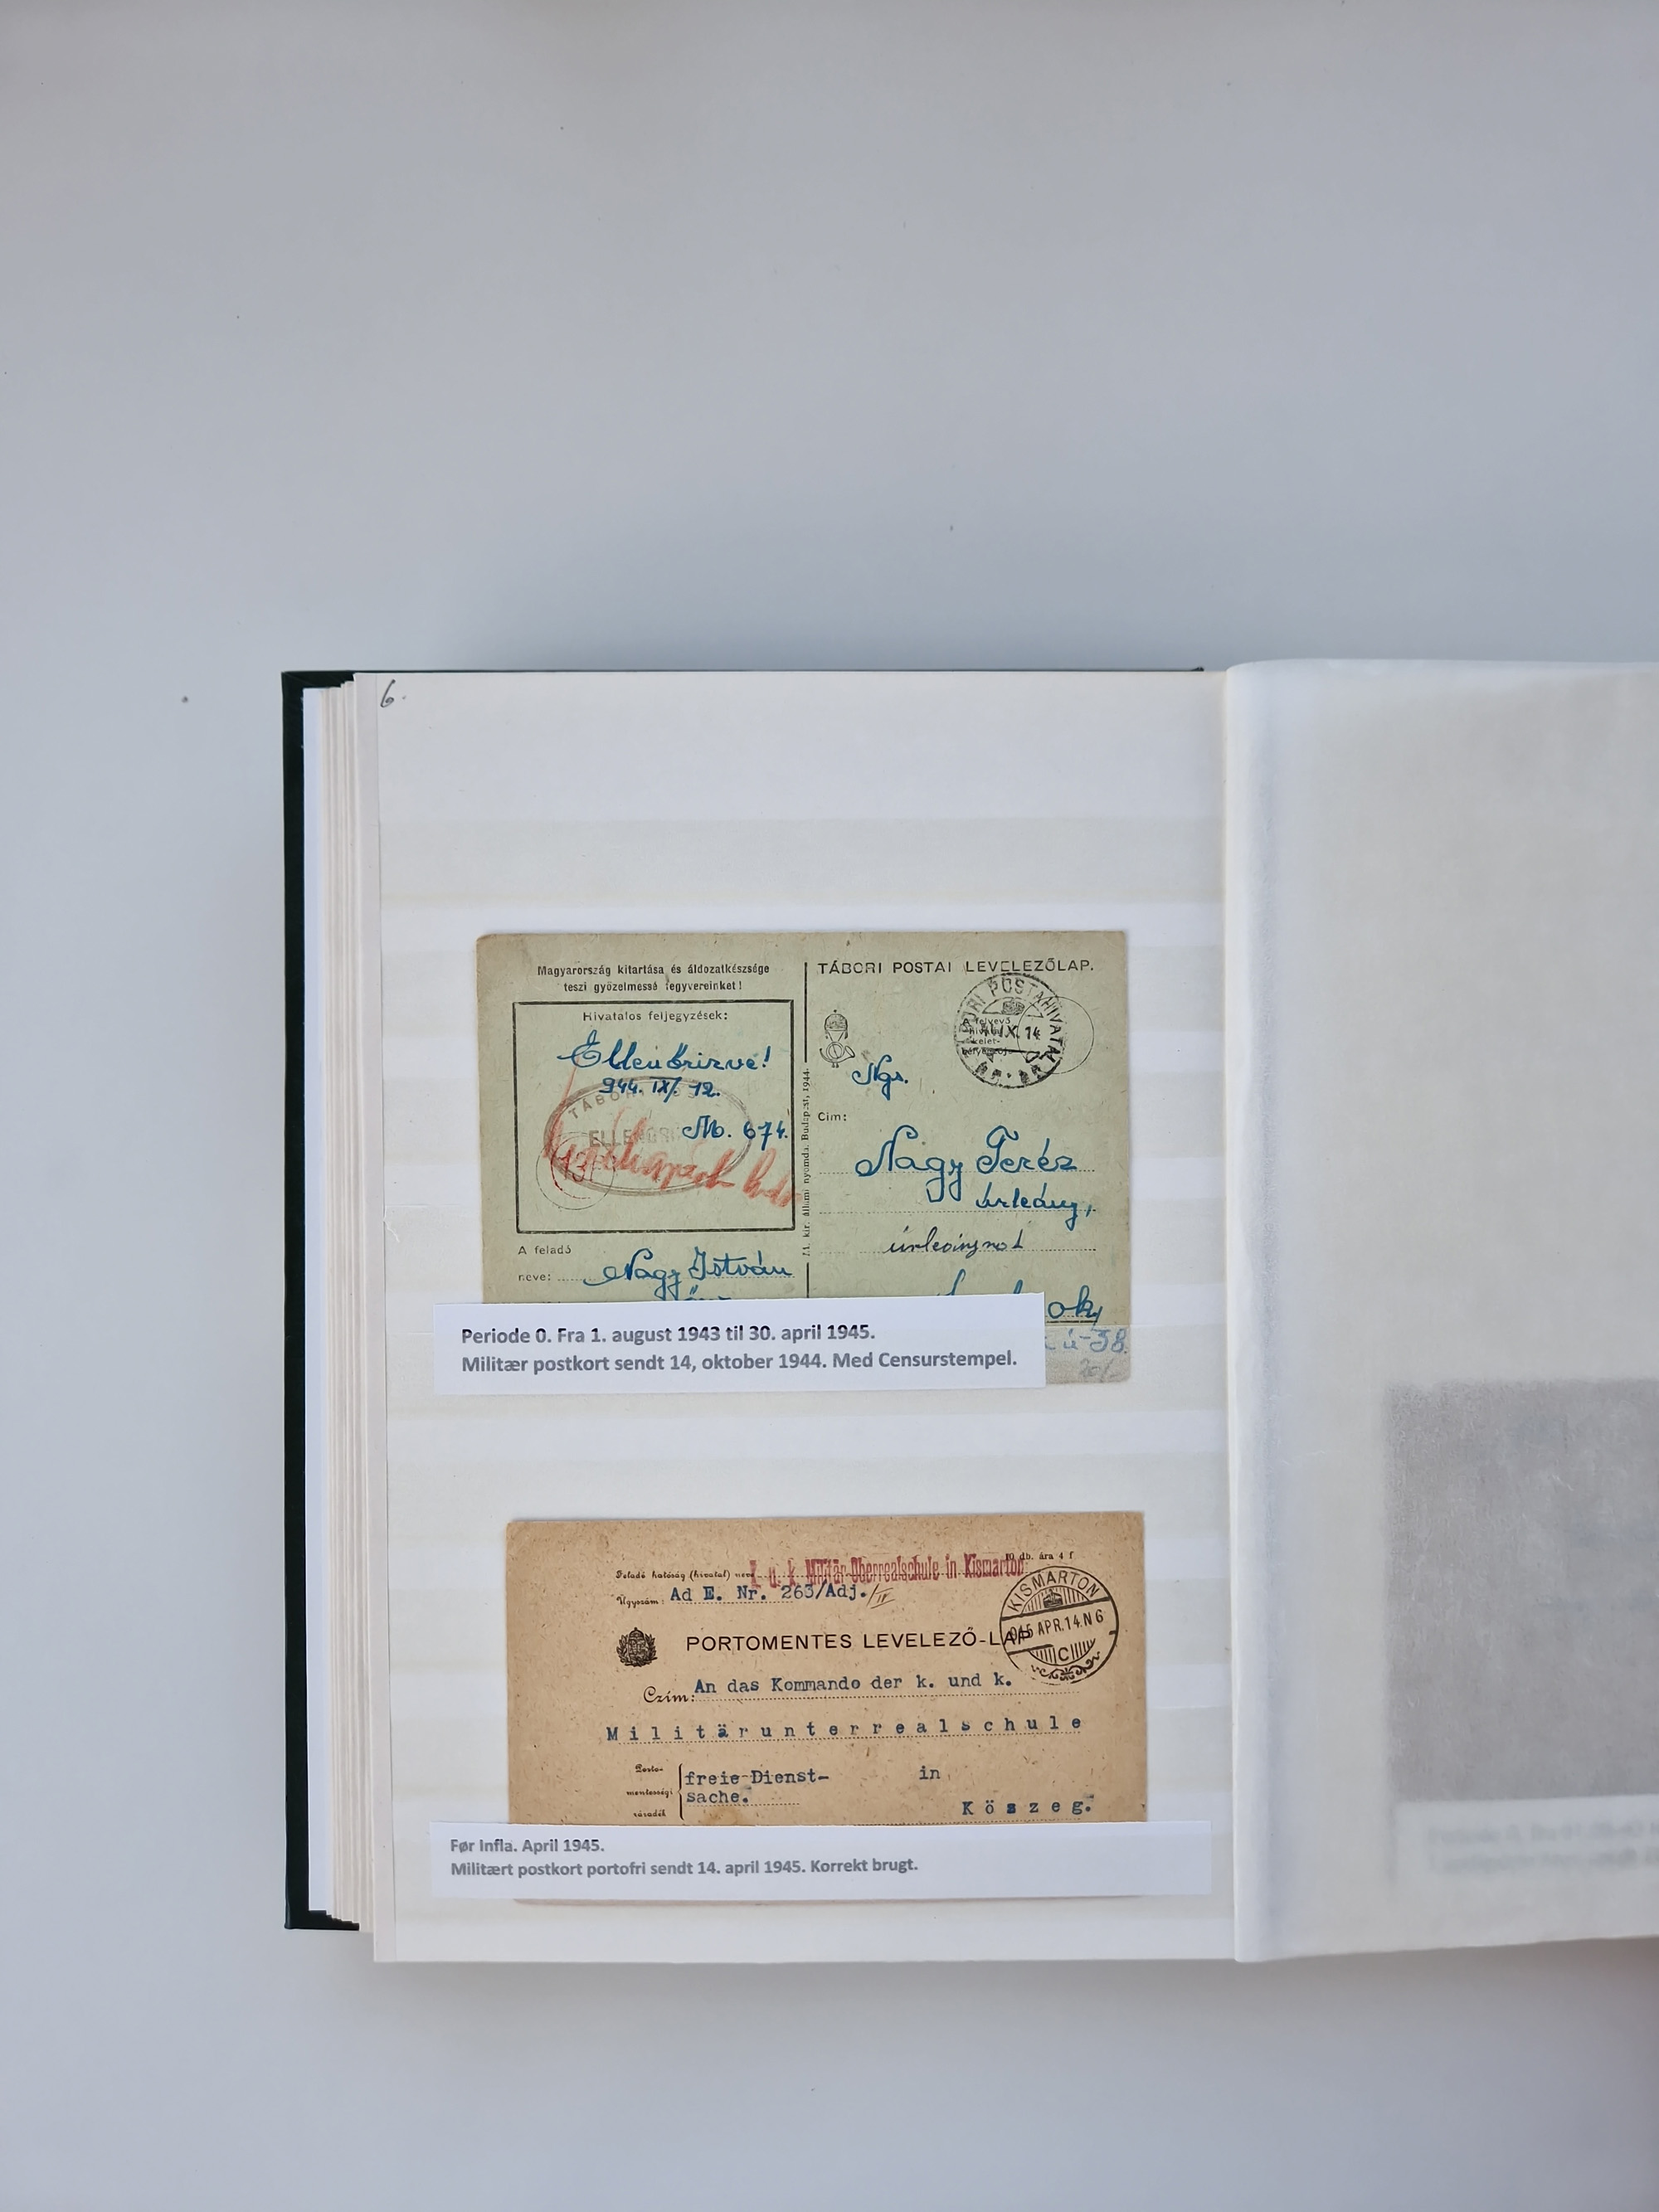 6.
Magyarország kitartása és áldozatkészsége
teszi győzelmessé fegyvereinket!
Hivatalos feljegyzések:
Ellenőrizve!
944. IX. 12.
M. 674.
TÁBORI
137
A feladó
neve: Nagy István
M. kir. állami nyomda. Budapest, 1944.
TÁBORI POSTAI LEVELEZŐLAP.
POSTAHIVATAL
IX. 14
Ngs.
Cim:
Nagy Teréz
úrleány,
ok,
ú-38.
20/-
Periode 0. Fra 1. august 1943 til 30. april 1945.
Militær postkort sendt 14, oktober 1944. Med Censurstempel.
10 db. ára 4 f
Feladó hatóság (hivatal) neve
k. u. k. Militär-Oberrealschule in Kismarton
Ügyszám: Ad E. Nr. 263/Adj./IV
KISMARTON
APR.14.N6
C
PORTOMENTES LEVELEZŐ-LAP
Czím: An das Kommando der k. und k.
Militärunterrealschule
Porto-
mentességi
záradék
freie Dienst- in
sache.
Köszeg.
Før Infla. April 1945.
Militært postkort portofri sendt 14. april 1945. Korrekt brugt.